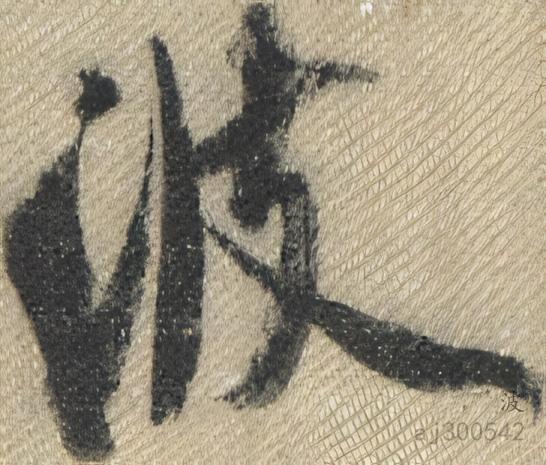 波
波
ajj300542